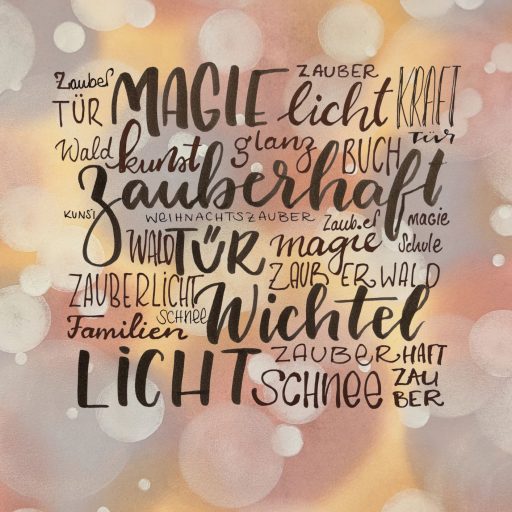 Zauber MAGIE ZAUBER licht KRAFT
TÜR
Wald kunst glanz BUCH Tür
zauberhaft
KUNST WEIHNACHTSZAUBER Zauber magie
WALD TÜR magie Schule
ZAUBERLICHT ZAUBERWALD
SCHNEE Wichtel
Familien
LICHT ZAUBERHAFT
SCHNEE ZAU
BER